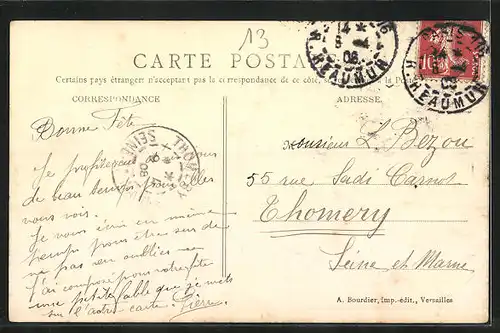 13
CARTE POSTALE
Certains pays étrangers n'acceptant pas la correspondance de ce côté,
CORRESPONDANCE
ADRESSE
R. REAUMUR
R. REAUMUR
10
THOMERY
SEINE
Bonne Fête
Je profiterai
de beau temps pour aller
vous voir.
Je vous écris en même
temps pour être sûr de
ne pas oublier
J'ai composé pour votre fête
une petite fable que je mets
sur l'autre carte. Pierre
Monsieur L. Bezou
55 rue Sadi Carnot
Thomery
Seine et Marne
A. Bourdier, Imp.-édit., Versailles